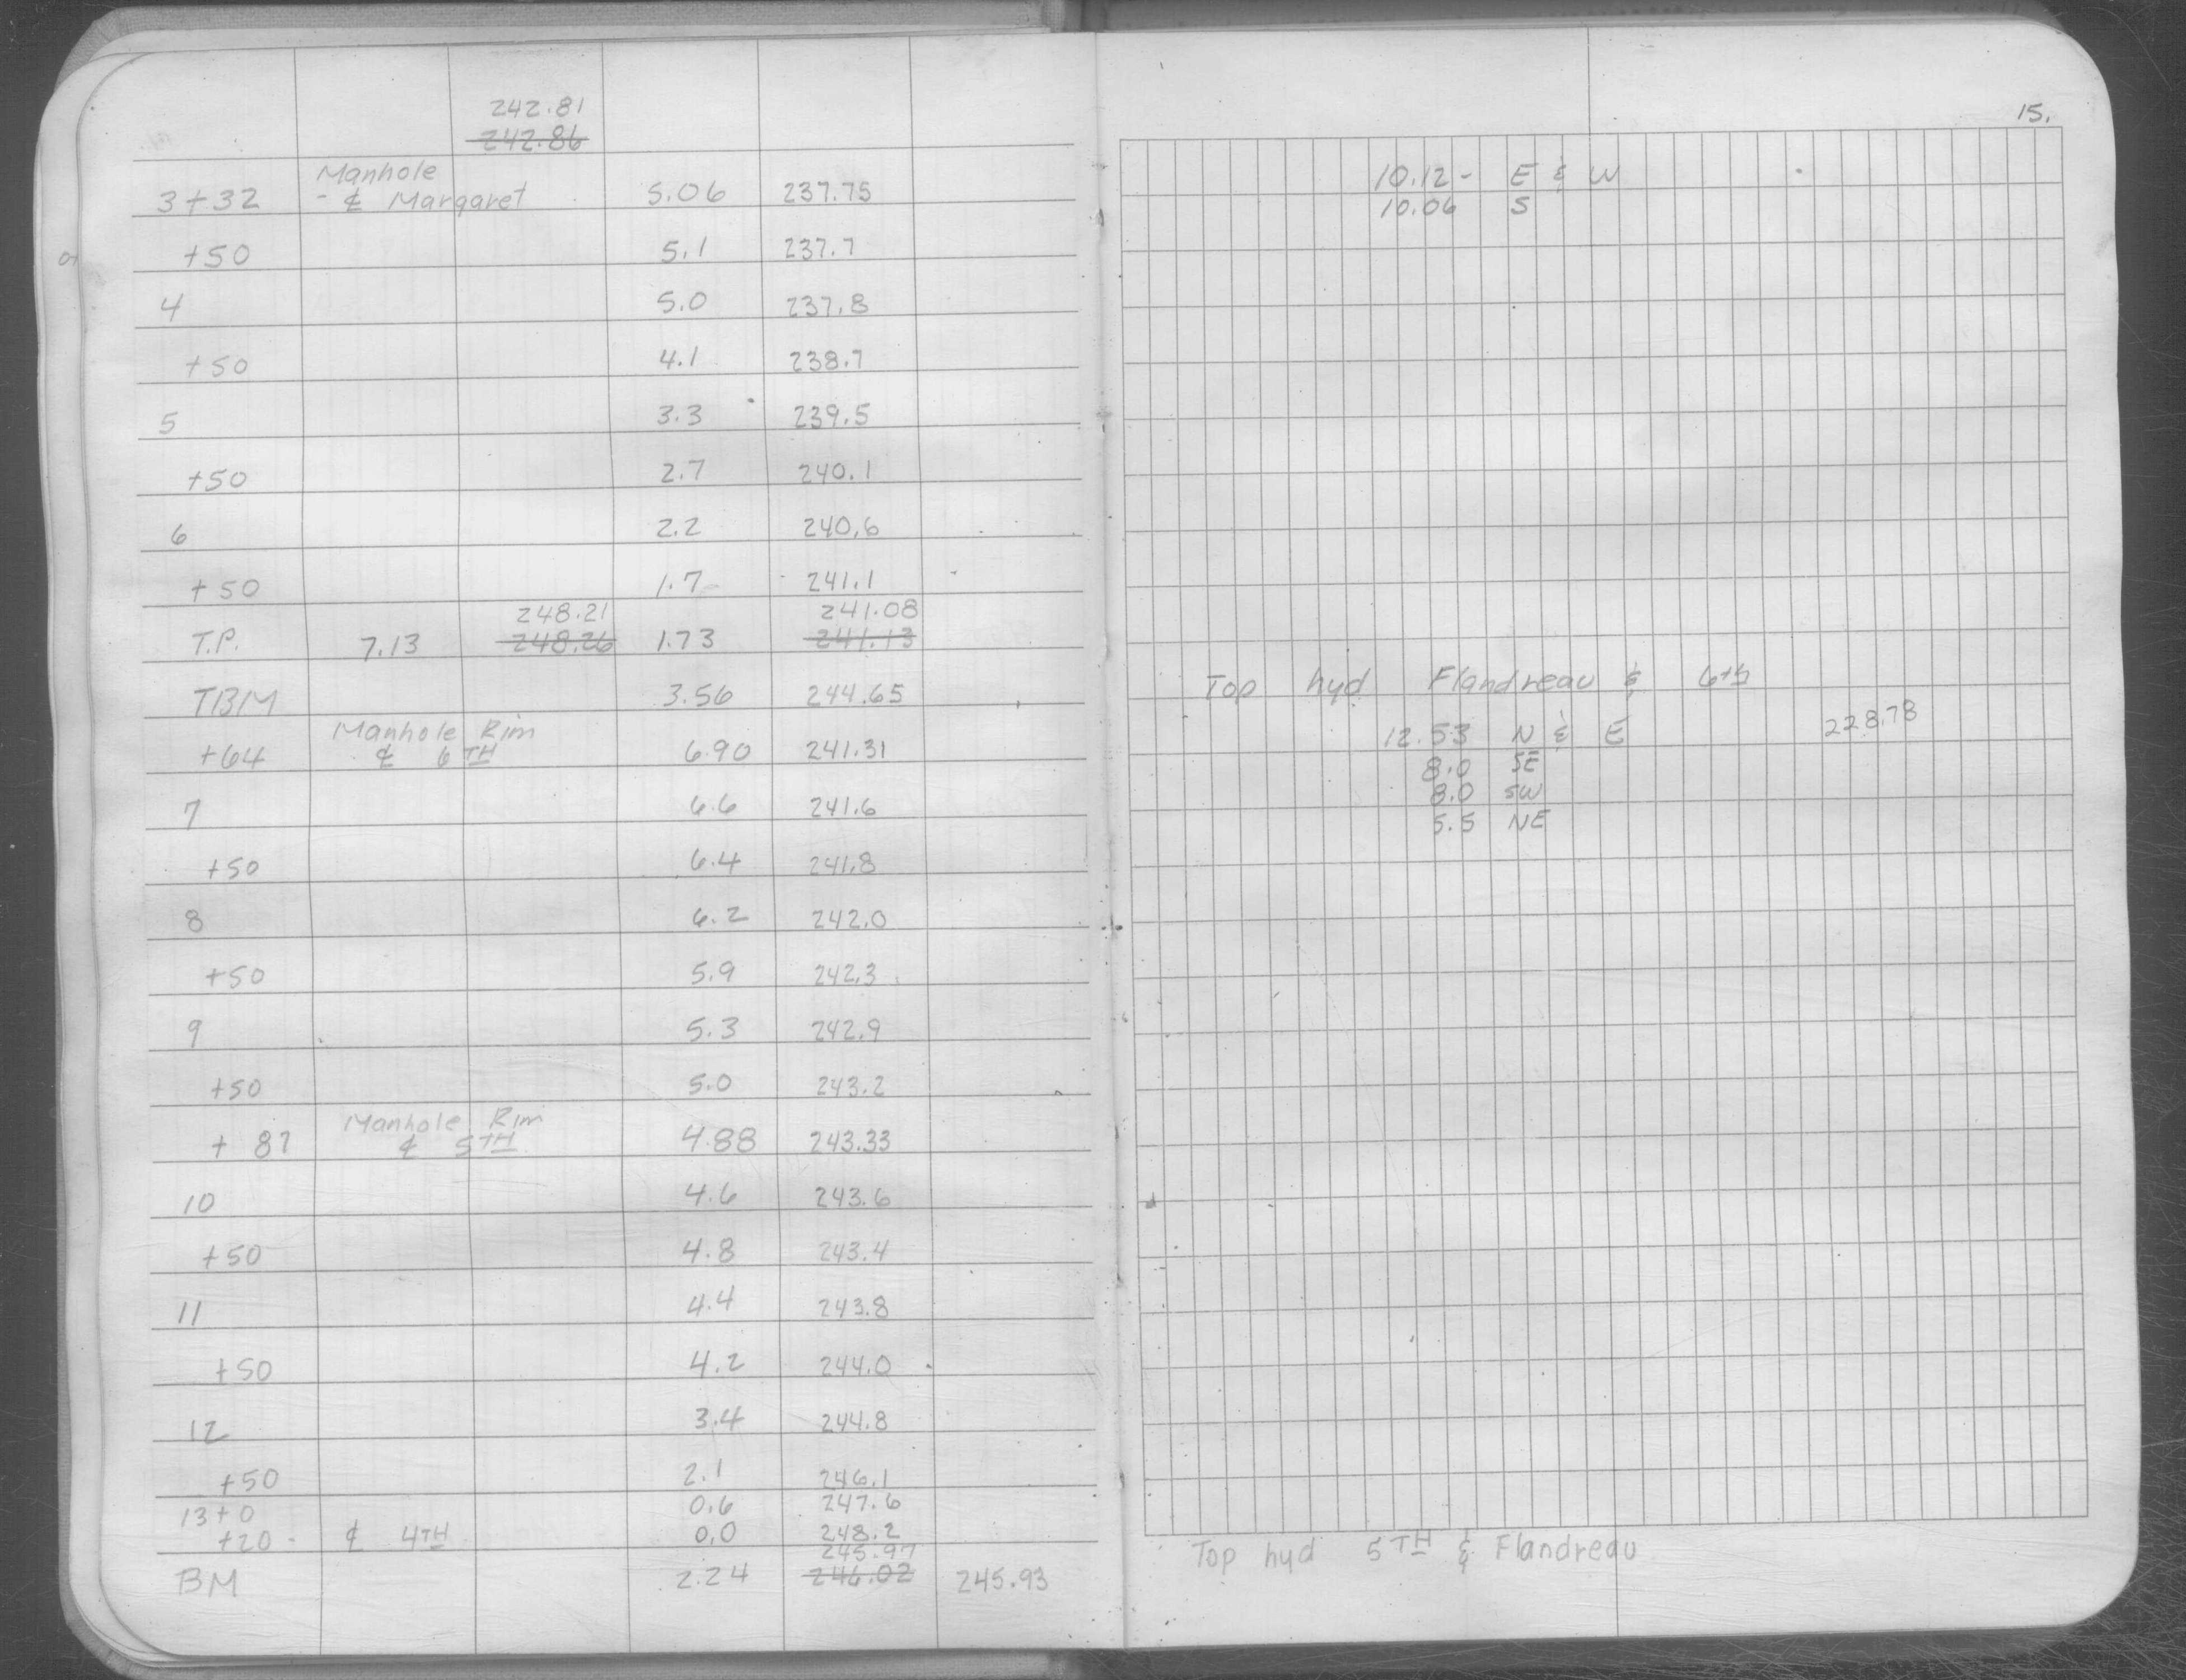 15.
242.81
242.86
Manhole
3+32 - ℄ Margaret 5.06 237.75 10.12 - E & W
10.06 S
+50 5.1 237.7
4 5.0 237.8
+50 4.1 238.7
5 3.3 239.5
+50 2.7 240.1
6 2.2 240.6
+50 1.7 241.1
248.21 241.08
T.P. 7.13 248.26 1.73 241.13
TBM 3.56 244.65 Top hyd Flandreau & 6th
Manhole Rim
+64 ℄ 6TH 6.90 241.31 12.53 N & E 228.78
8.0 SE
8.0 SW
5.5 NE
7 6.6 241.6
+50 6.4 241.8
8 6.2 242.0
+50 5.9 242.3
9 5.3 242.9
+50 5.0 243.2
Manhole Rim
+ 87 ℄ 5TH 4.88 243.33
10 4.6 243.6
+50 4.8 243.4
11 4.4 243.8
+50 4.2 244.0
12 3.4 244.8
+50 2.1 246.1
13+0 0.6 247.6
+20 - ℄ 4TH 0.0 248.2
245.97
BM 2.24 246.02 245.93 Top hyd 5TH & Flandreau